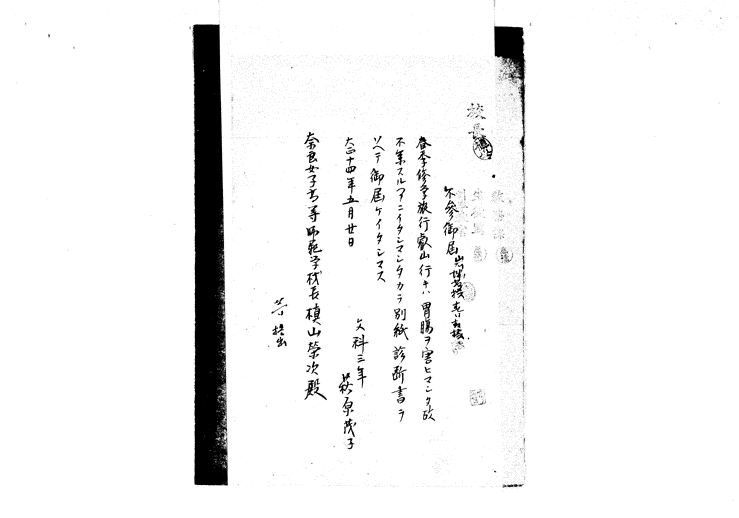 校長
不參御届
春季修学旅行叡山行キハ胃腸ヲ害ヒマシタ故
不参スル事ニイタシマシタカラ別紙診断書ヲ
ソヘテ御届ケイタシマス
大正十四年五月廿日
文科三年
萩原茂子
奈良女子高等師範学校長槙山榮次殿